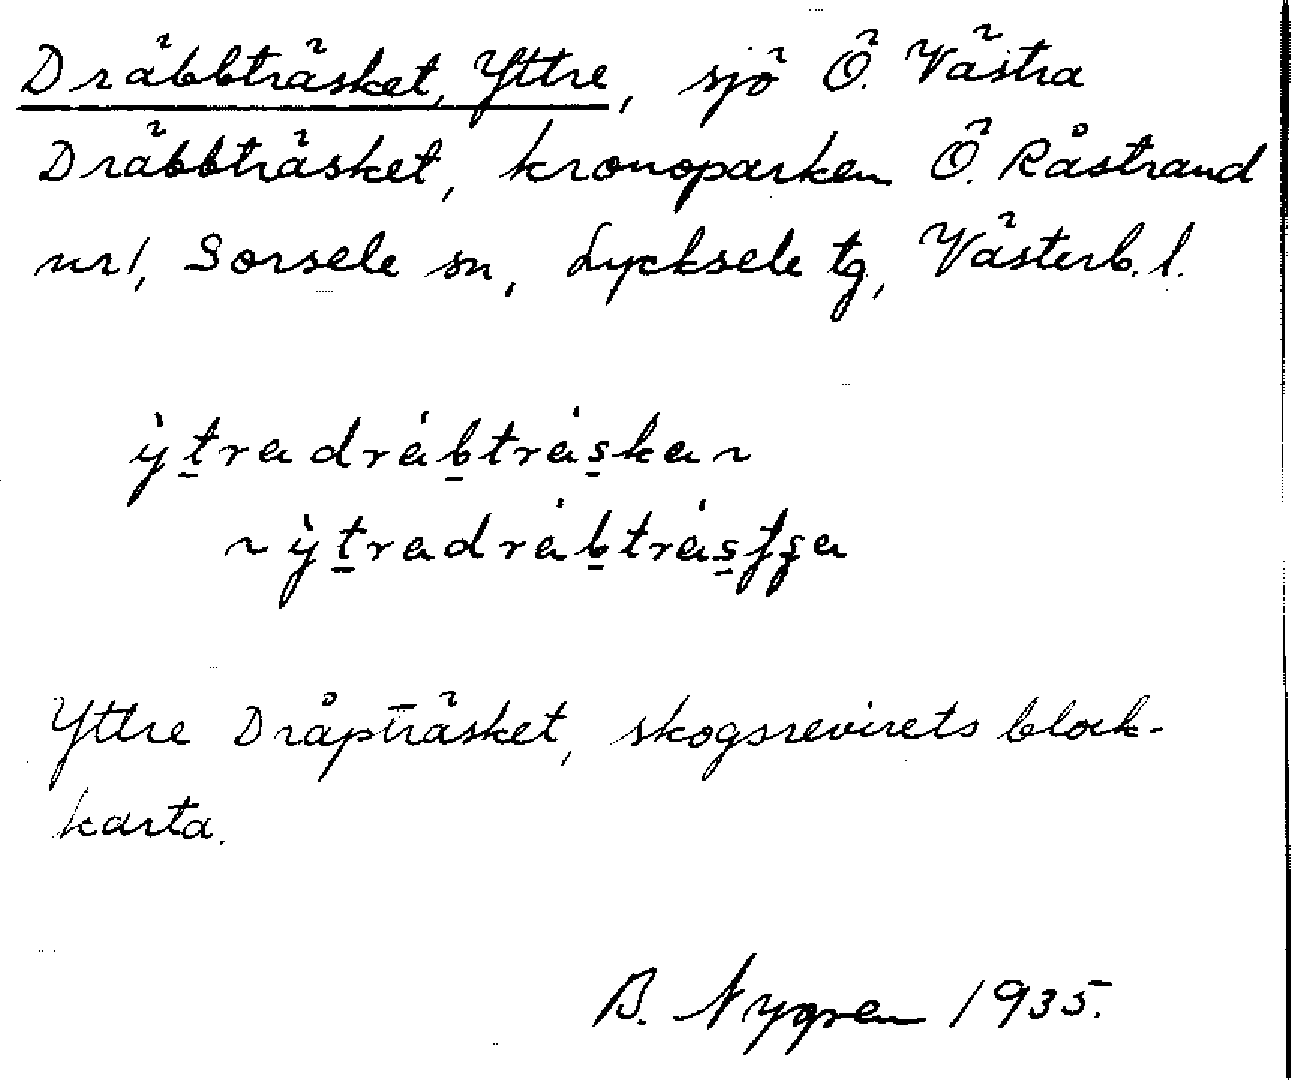 Dräbbträsket, Yttre, sjö Ö. Västra
Dräbbträsket, kronoparken Ö. Råstrand
nr 1, Sorsele sn, Lycksele tg, Västerb. l.
ỳt̲radráb̲trás̲ka ~
~ ỳt̲radráb̲trás̲
Yttre Dråpträsket, skogsrevirets block-
karta.
B. Nygren 1935.